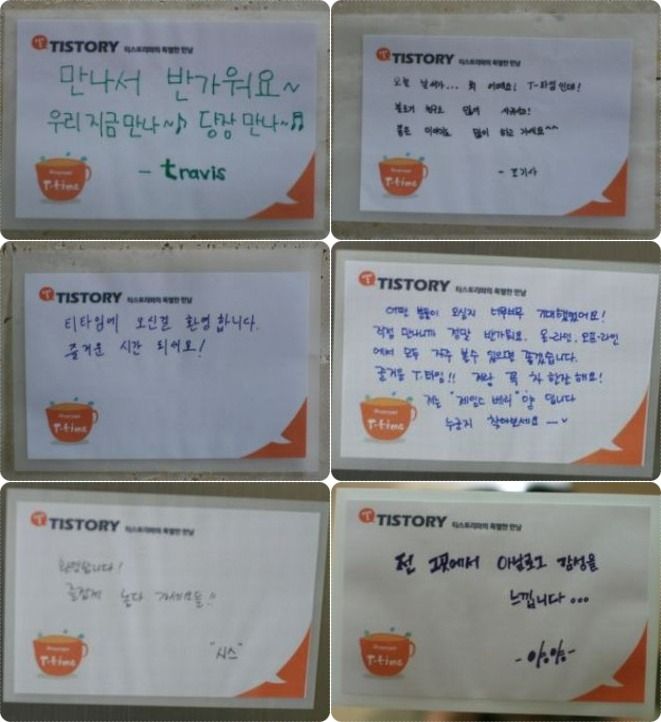 TISTORY 티스토리와의 특별한 만남
만나서 반가워요~
우리 지금 만나~♪ 당장 만나~♬
- travis
T-time
TISTORY 티스토리와의 특별한 만남
오늘 날씨가... 뭐 어때요! T-타임인데!
좋은 이야기도 많이 하고 가세요^^
T-time
TISTORY 티스토리와의 특별한 만남
티타임에 오신걸 환영합니다.
즐거운 시간 되세요!
T-time
TISTORY 티스토리와의 특별한 만남
어떤 분들이 오실지 너무너무 기대했었어요!
직접 만나니까 정말 반가워요. 온-라인, 오프-라인
에서 모두 자주 볼수 있으면 좋겠습니다.
즐거운 T-타임!! 저랑 꼭 차 한잔 해요!
저는 "제임스 베리" 입니다
누군지 찾아보세요
T-time
TISTORY 티스토리와의 특별한 만남
환영합니다!
즐겁게 놀다 가세요들!!
"시스"
T-time
TISTORY 티스토리와의 특별한 만남
전 그곳에서 아날로그 감성을
느낍니다...
T-time